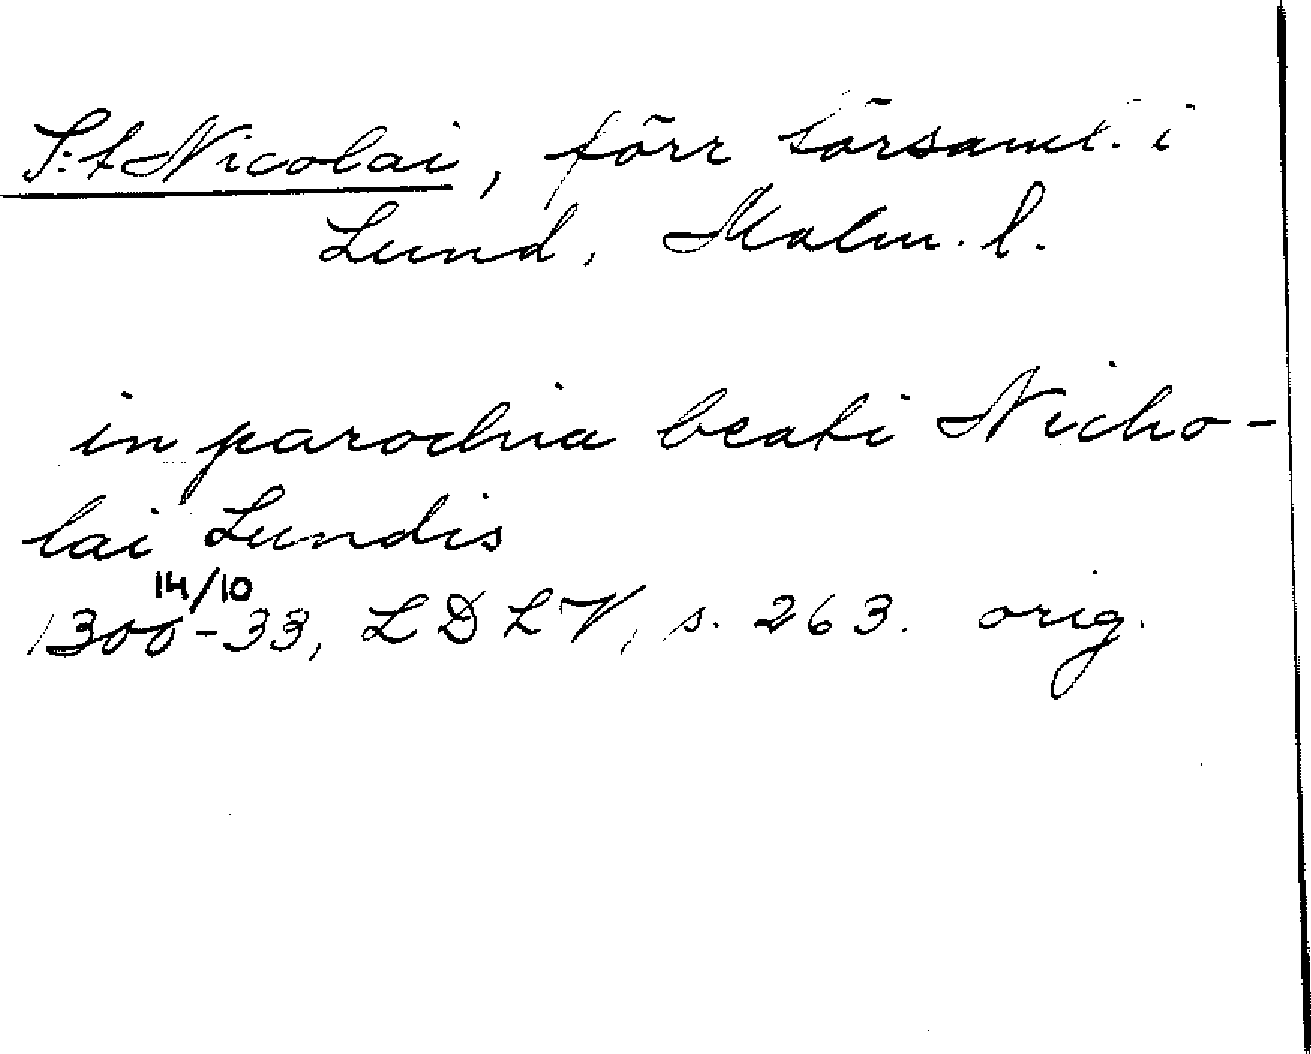 S:t Nicolai, förr församl. i
Lund, Malm. l.
in parochia beati Nicho-
lai Lundis
14/10
1300-33, LDLV, s. 263. orig.